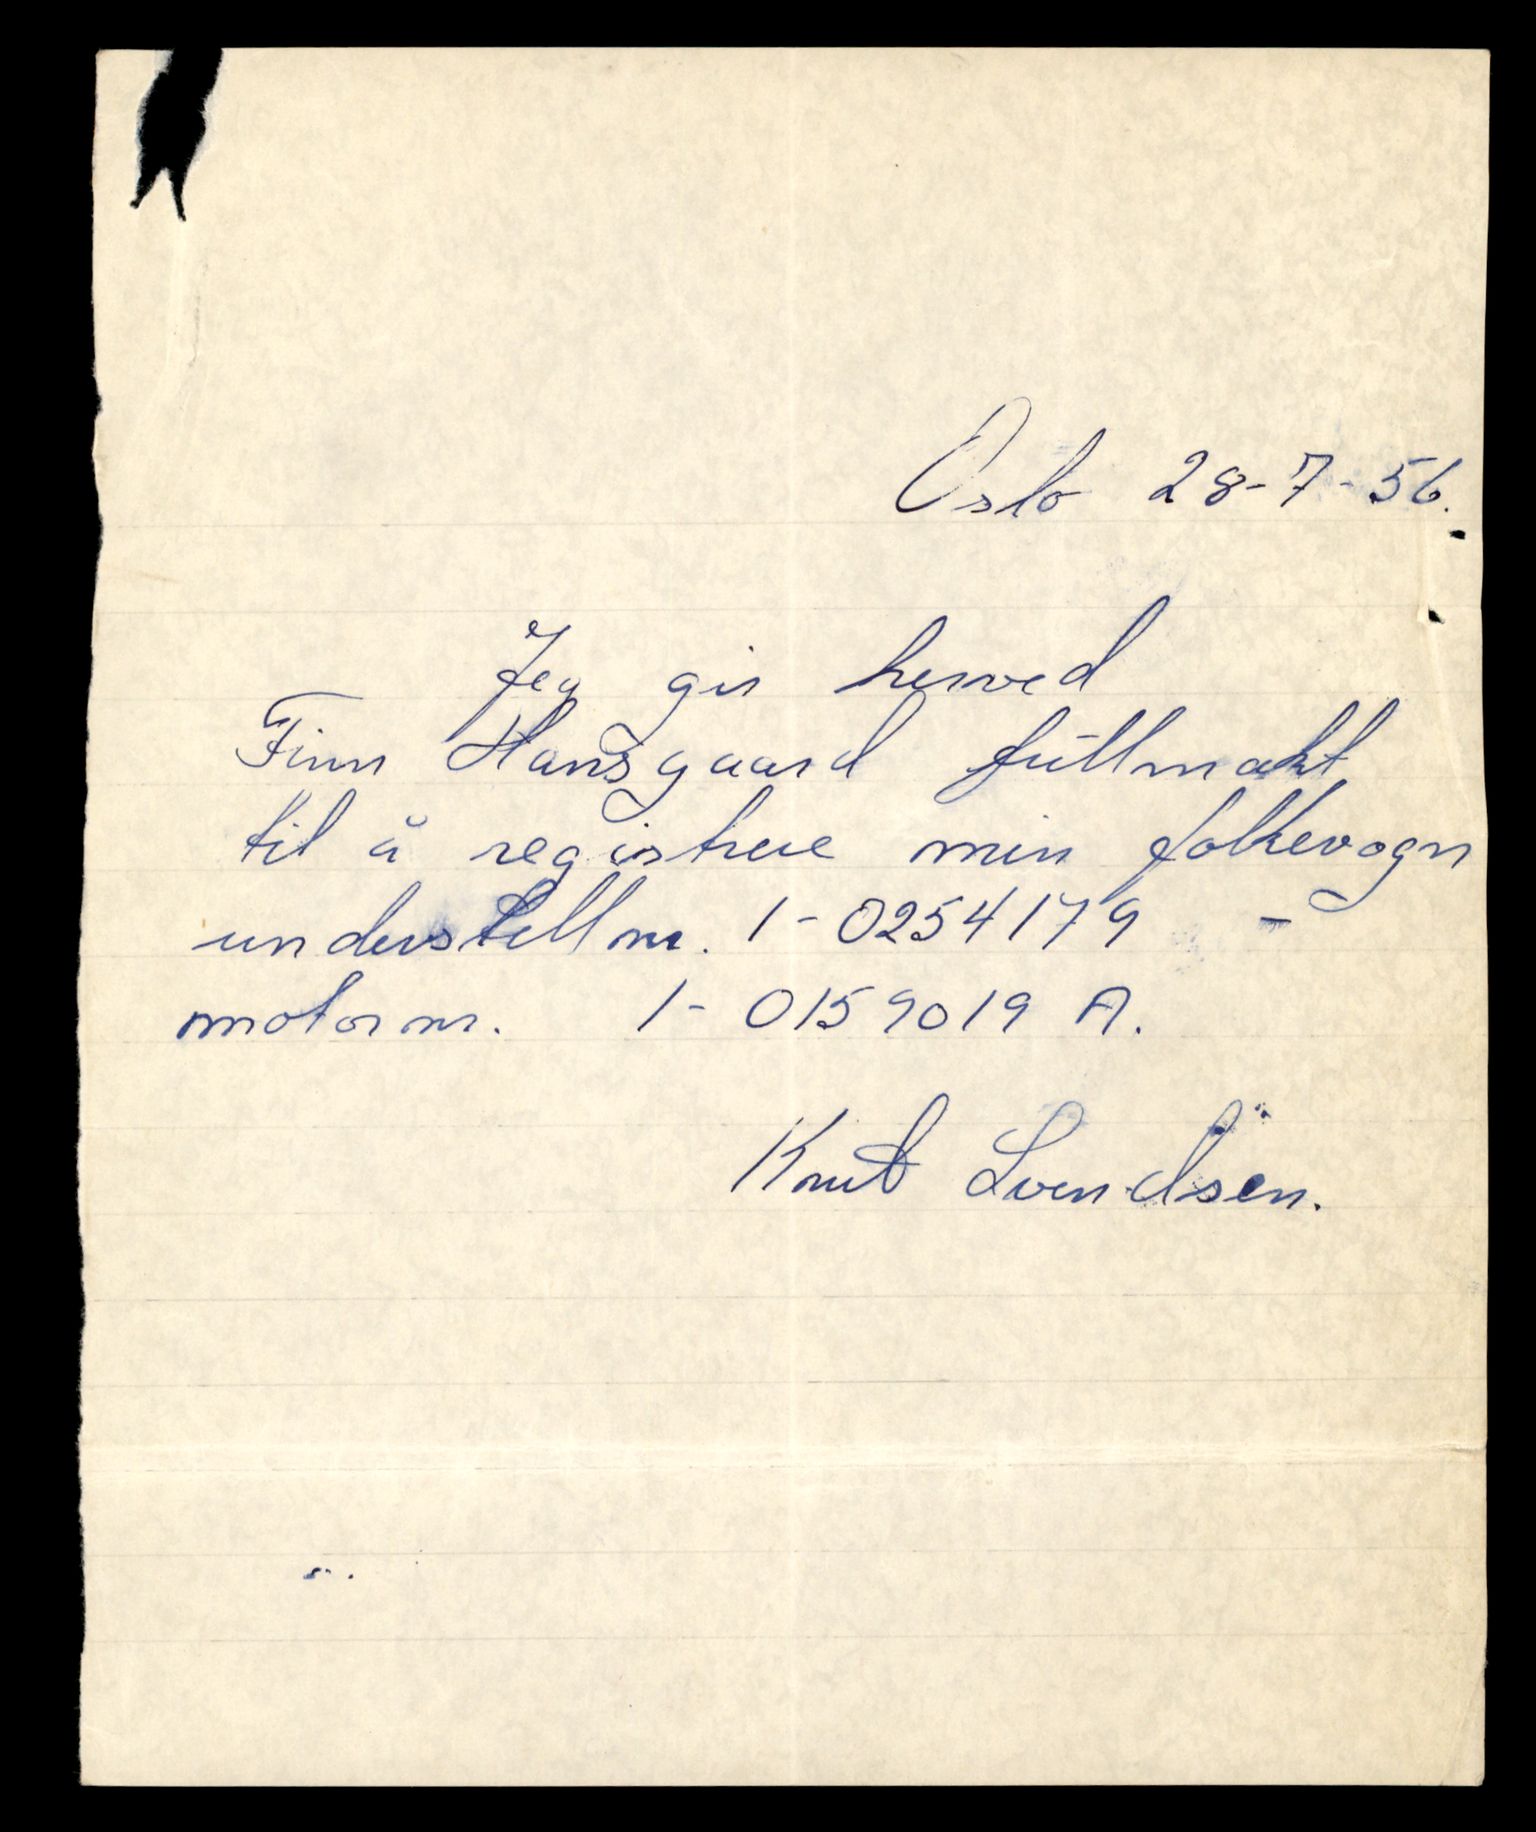 Oslo 28-7-56.
Jeg gir herved
Finn Hansgaard fullmakt
til å registrere min folkevogn
understell nr. 1-0254179 -
motor nr. 1-0159019 A.
Knut Svendsen.